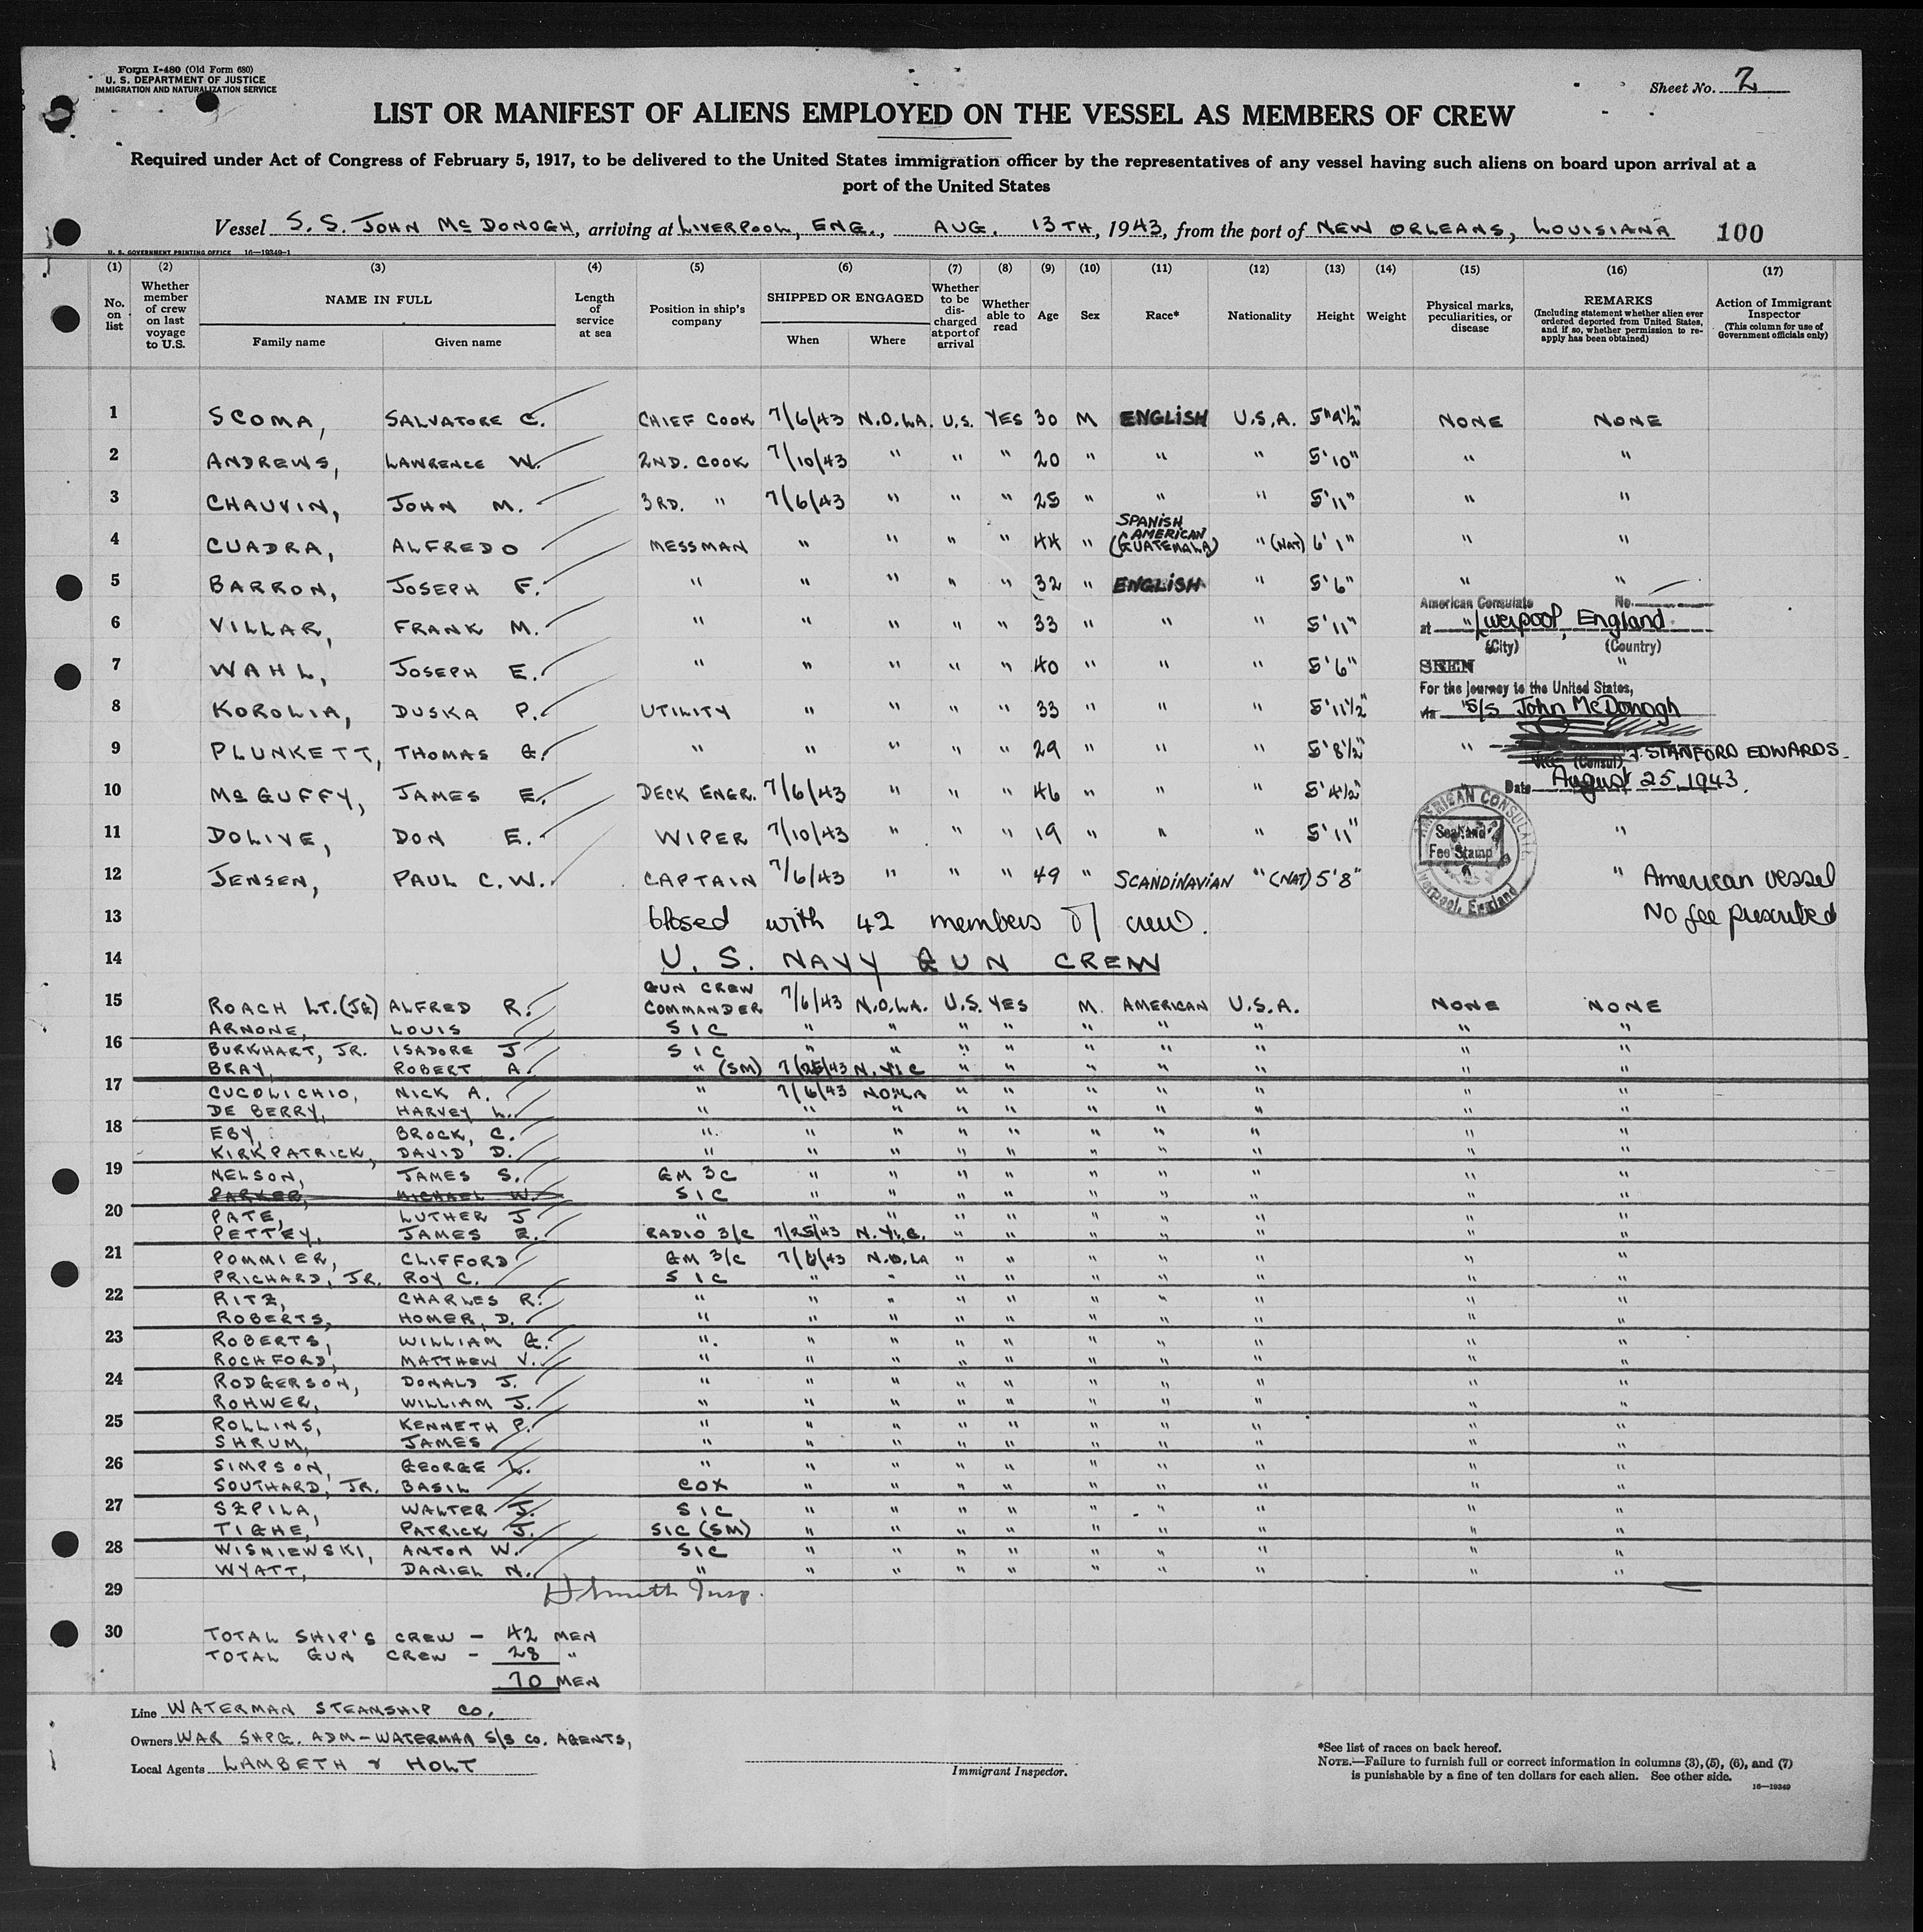 Form I-480 (Old Form 680)
U. S. DEPARTMENT OF JUSTICE
IMMIGRATION AND NATURALIZATION SERVICE
Sheet No. 2
LIST OR MANIFEST OF ALIENS EMPLOYED ON THE VESSEL AS MEMBERS OF CREW
Required under Act of Congress of February 5, 1917, to be delivered to the United States immigration officer by the representatives of any vessel having such aliens on board upon arrival at a
port of the United States
Vessel S. S. JOHN Mc DONOGH, arriving at LIVERPOOL, ENG., AUG. 13TH, 1943, from the port of NEW ORLEANS, LOUISIANA 100
U. S. GOVERNMENT PRINTING OFFICE 16—19349-1
(1) (2) (3) (4) (5) (6) (7) (8) (9) (10) (11) (12) (13) (14) (15) (16) (17)
No. on list
Whether member of crew on last voyage to U.S.
NAME IN FULL
Family name
Given name
Length of service at sea
Position in ship's company
SHIPPED OR ENGAGED
When
Where
Whether to be discharged at port of arrival
Whether able to read
Age
Sex
Race*
Nationality
Height
Weight
Physical marks, peculiarities, or disease
REMARKS
(Including statement whether alien ever ordered deported from United States, and if so, whether permission to re-apply has been obtained)
Action of Immigrant Inspector
(This column for use of Government officials only)
1 SCOMA, SALVATORE C. CHIEF COOK 7/6/43 N.O.LA. U.S. YES 30 M ENGLISH U.S.A. 5"9½" NONE NONE
2 ANDREWS, LAWRENCE W. 2ND. COOK 7/10/43 " " " 20 " " " 5'10" " "
3 CHAUVIN, JOHN M. 3RD. " 7/6/43 " " " 25 " " " 5'11" " "
4 CUADRA, ALFREDO MESSMAN " " " " 44 " SPANISH AMERICAN (GUATEMALA) " (NAT) 6'1" " "
5 BARRON, JOSEPH F. " " " " " 32 " ENGLISH " 5'6" " "
6 VILLAR, FRANK M. " " " " " 33 " " " 5'11" "
7 WAHL, JOSEPH E. " " " " " 40 " " " 5'6" "
8 KOROLIA, DUSKA P. UTILITY " " " " 33 " " " 5'11½" "
9 PLUNKETT, THOMAS G. " " " " " 29 " " " 5'8½" "
10 McGUFFY, JAMES E. DECK ENGR. 7/6/43 " " " 46 " " " 5'4½"
11 DOLIVE, DON E. WIPER 7/10/43 " " " 19 " " " 5'11" "
12 JENSEN, PAUL C.W. CAPTAIN 7/6/43 " " " 49 " SCANDINAVIAN " (NAT) 5'8" "
American Consulate No.
at Liverpool, England
(City) (Country)
SEEN
For the journey to the United States,
via S/S John McDonogh
Vice (Consul) J. STANFORD EDWARDS
Date August 25, 1943.
AMERICAN CONSULATE
Seal and
Fee Stamp
Liverpool, England
American vessel
No fee prescribed
13 closed with 42 members of crew.
14 U. S. NAVY GUN CREW
15 ROACH LT.(JG) ALFRED R. GUN CREW COMMANDER 7/6/43 N.O.LA. U.S. YES M. AMERICAN U.S.A. NONE NONE
ARNONE, LOUIS S1C " " " " " " " " "
16 BURKHART, JR. ISADORE J S1C " " " " " " " " "
BRAY, ROBERT A. " (SM) 7/25/43 N.Y.C " " " " " " "
17 CUCOLICHIO, NICK A. " 7/6/43 N.O.LA " " " " " " "
DE BERRY, HARVEY L. " " " " " " " " " "
18 EBY, BROCK, C. " " " " " " " " " "
KIRKPATRICK, DAVID D. " " " " " " " " " "
19 NELSON, JAMES S. GM 3C " " " " " " " " "
PARKER, MICHAEL W. S1C " " " " " " " " "
20 PATE, LUTHER J " " " " " " " " " "
PETTEY, JAMES E. RADIO 3/C 7/25/43 N.Y.C. " " " " " " "
21 POMMIER, CLIFFORD GM 3/C 7/6/43 N.O.LA " " " " " " "
PRICHARD, JR. ROY C. S1C " " " " " " " " "
22 RITZ, CHARLES R. " " " " " " " " " "
ROBERTS, HOMER, D. " " " " " " " " " "
23 ROBERTS, WILLIAM G. " " " " " " " " " "
ROCHFORD, MATTHEW V. " " " " " " " " " "
24 RODGERSON, DONALD J. " " " " " " " " " "
ROHWER, WILLIAM J. " " " " " " " " " "
25 ROLLINS, KENNETH P. " " " " " " " " " "
SHRUM, JAMES " " " " " " " " " "
26 SIMPSON, GEORGE L. " " " " " " " " " "
SOUTHARD, JR. BASIL COX " " " " " " " " "
27 SZPILA, WALTER J. S1C " " " " " " " " "
TIGHE, PATRICK J. S1C (SM) " " " " " " " " "
28 WISNIEWSKI, ANTON W. S1C " " " " " " " " "
WYATT, DANIEL N. " " " " " " " " " "
29 Smith Insp.
30 TOTAL SHIP'S CREW - 42 MEN
TOTAL GUN CREW - 28 "
70 MEN
Line WATERMAN STEAMSHIP CO.
Owners WAR SHPG. ADM-WATERMAN S/S CO. AGENTS,
Local Agents LAMBETH & HOLT
Immigrant Inspector.
*See list of races on back hereof.
NOTE.—Failure to furnish full or correct information in columns (3), (5), (6), and (7)
is punishable by a fine of ten dollars for each alien. See other side.
16—19349